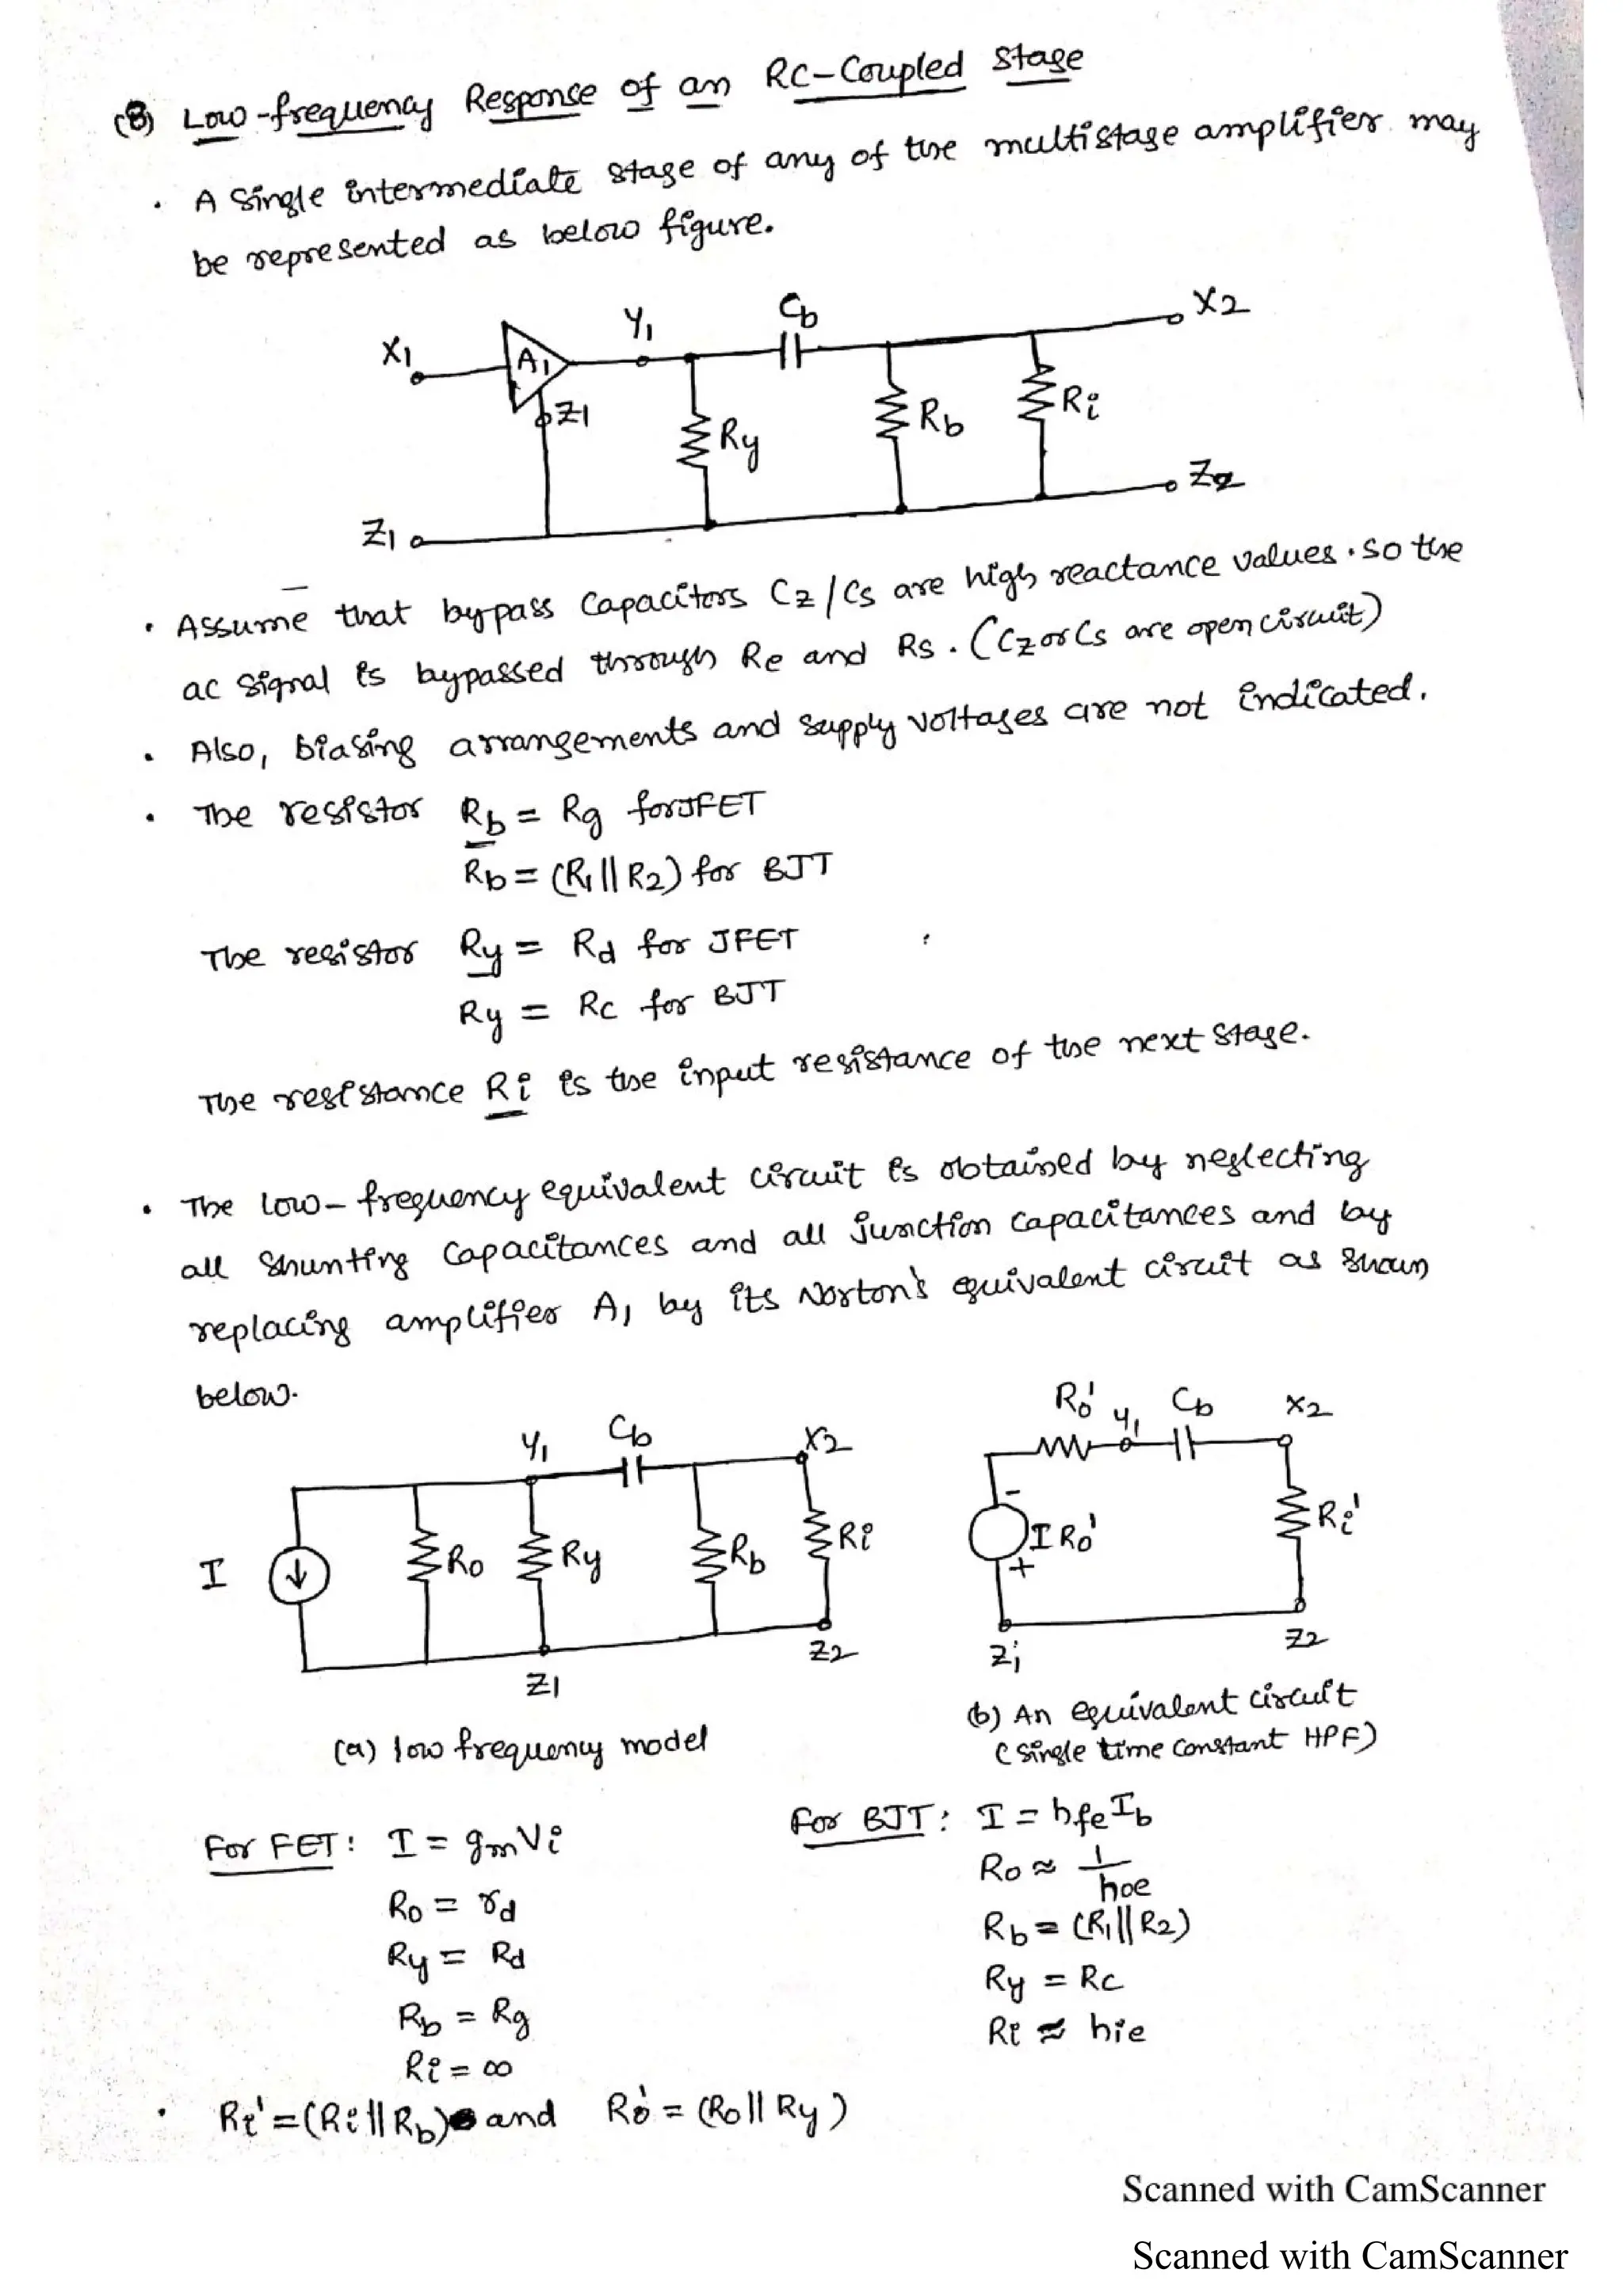 (8) Low-frequency Response of an RC-Coupled Stage
· A Single intermediate stage of any of the multistage amplifier may
be represented as below figure.
X1 A1 Y1 Cb X2
Z1 Ry Rb Ri
Z1 Z2
· Assume that bypass Capacitors Cz/Cs are high reactance values. So the
ac signal is bypassed through Re and Rs. (Cz or Cs are open circuit)
· Also, biasing arrangements and supply voltages are not indicated.
· The resistor Rb = Rg for JFET
Rb = (R1 || R2) for BJT
The resistor Ry = Rd for JFET
Ry = Rc for BJT
The resistance Ri is the input resistance of the next stage.
· The low-frequency equivalent circuit is obtained by neglecting
all shunting Capacitances and all junction capacitances and by
replacing amplifier A1 by its Norton's equivalent circuit as shown
below.
Y1 Cb X2
I Ro Ry Rb Ri
Z1 Z2
(a) low frequency model
Ro' Y1 Cb X2
-
I Ro' Ri'
+
Z1 Z2
(b) An equivalent circuit
(single time constant HPF)
For FET: I = gmVi
Ro = rd
Ry = Rd
Rb = Rg
Ri = ∞
For BJT: I = hfe Ib
Ro ≈ 1/hoe
Rb = (R1 || R2)
Ry = Rc
Ri ≈ hie
· Ri' = (Ri || Rb) and Ro' = (Ro || Ry)
Scanned with CamScanner
Scanned with CamScanner